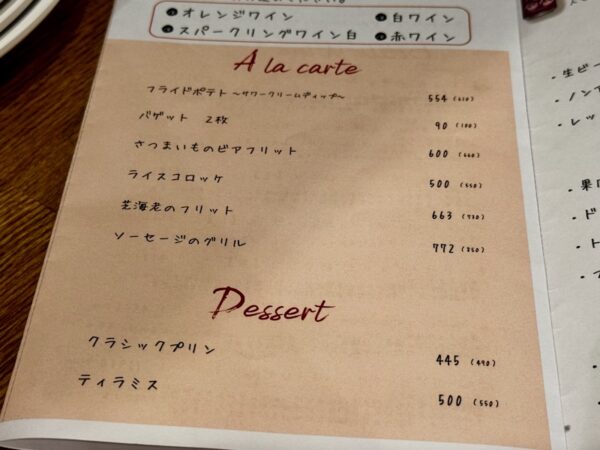 ●オレンジワイン ●白ワイン
●スパークリングワイン白 ●赤ワイン
A la carte
フライドポテト～サワークリームディップ～ 554 (610)
バゲット 2枚 90 (100)
さつまいものビアフリット 600 (660)
ライスコロッケ 500 (550)
芝海老のフリット 663 (730)
ソーセージのグリル 772 (850)
Dessert
クラシックプリン 445 (490)
ティラミス 500 (550)
・生ビー
・ノンア
・レッ
・果
・ド
・ト